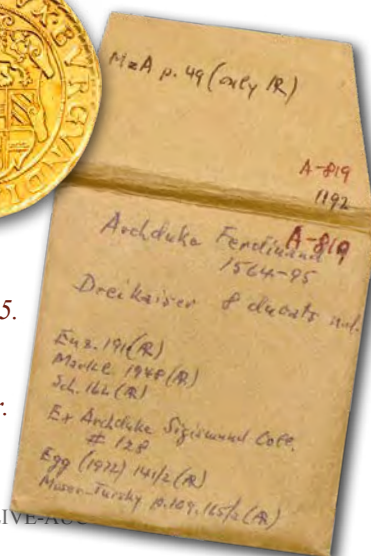 X·BVRGVNDI
MzA p. 49 (only AR)
A-819
1192
A-819
Archduke Ferdinand
1564-95
Dreikaiser 8 ducats nd.
Enz. 191 (AR)
Markl. 1948 (AR)
Sch. 164 (AR)
Ex Archduke Sigismund Coll.
# 128
Egg (1972) 141/2 (AR)
Moser-Tursky p.109, 165/2 (AR)
5.
r.